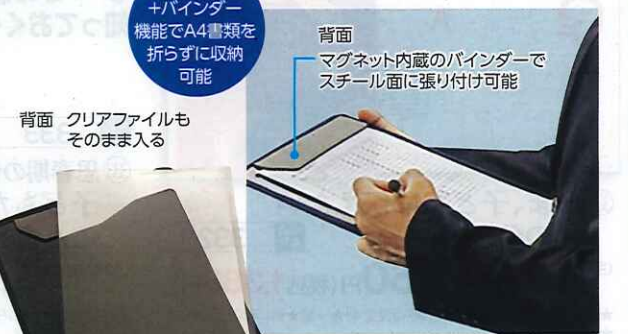 +バインダー
機能でA4書類を
折らずに収納
可能
背面
マグネット内蔵のバインダーで
スチール面に張り付け可能
背面 クリアファイルも
そのまま入る